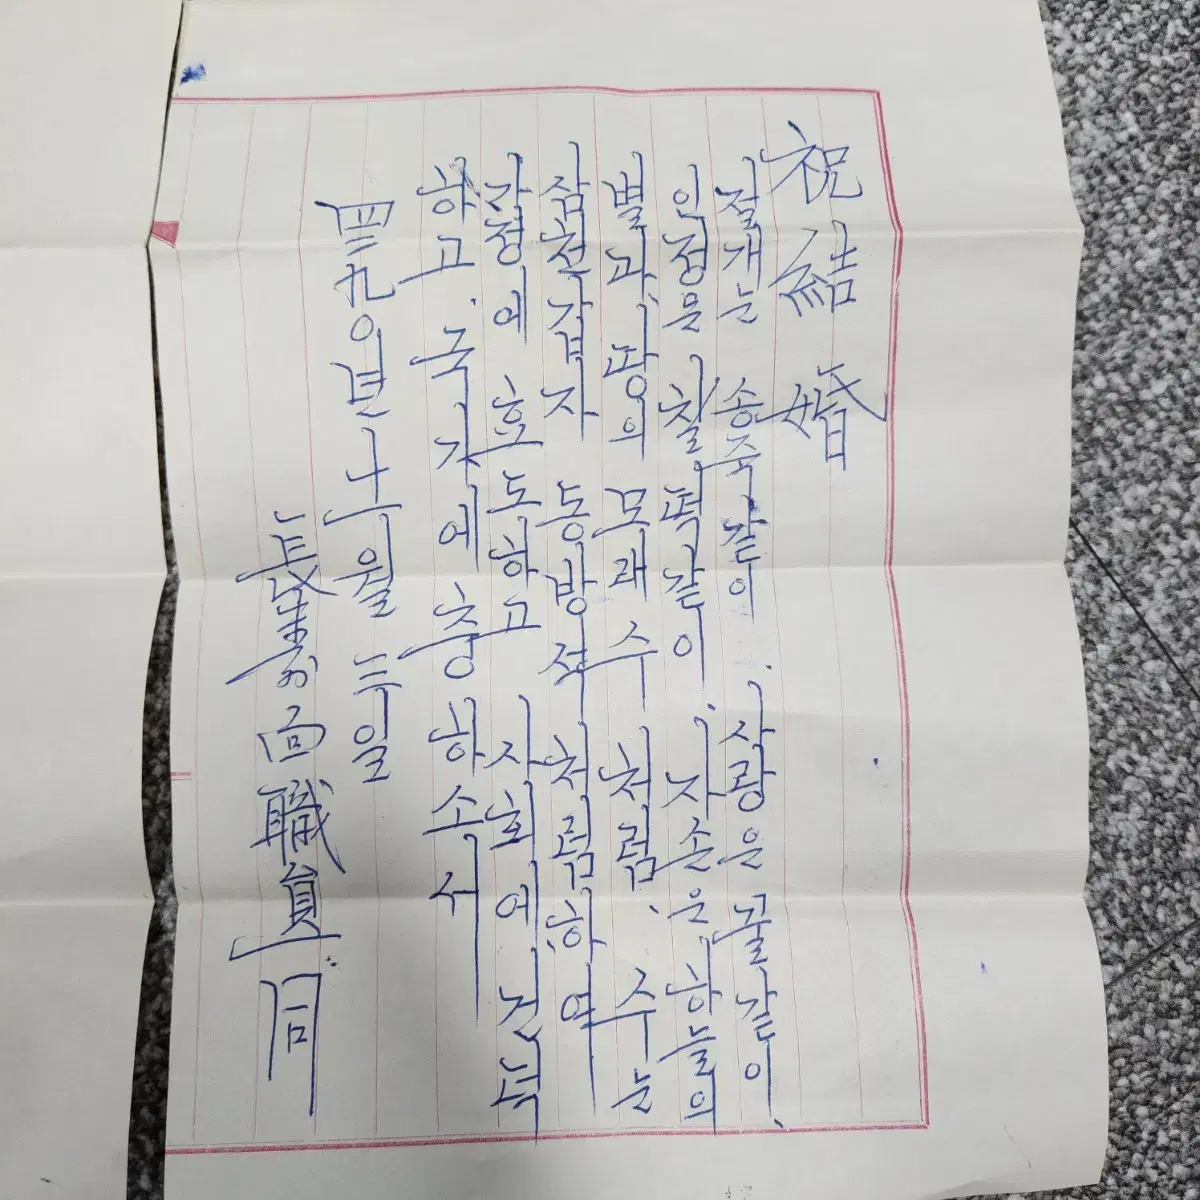 祝結婚
절개는 송죽같이. 사랑은 꿀같이.
인정은 찰떡같이. 자손은 하늘의
별과 땅의 모래 수 처럼. 수는
삼천갑자 동방석 처럼하여
가정에 효도하고 사회에
하고. 국가에 충하소서
四二九〇년 十월 三일
長壽面職員一同